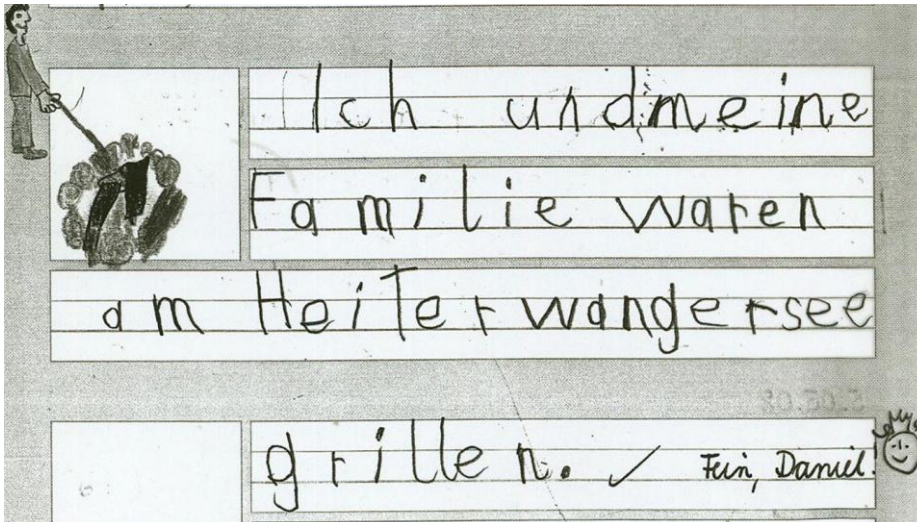 Ich und meine
Familie waren
am Heiterwangersee
grillen. ✓ Fein, Daniel!